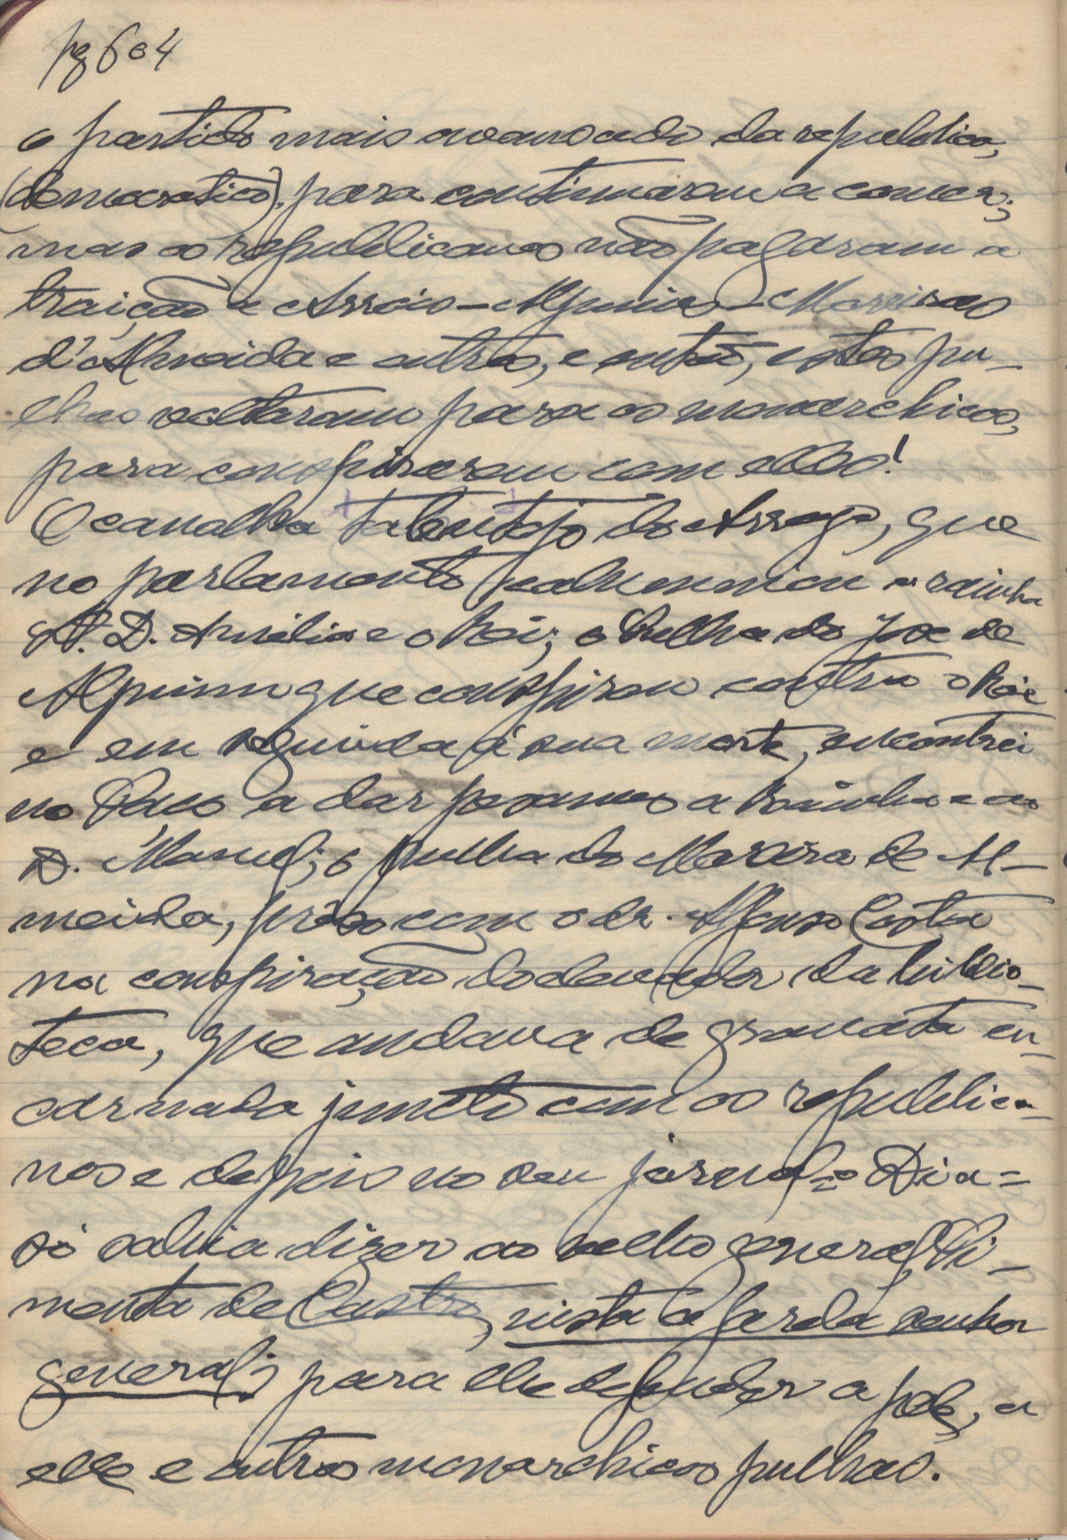 pg 604
o partido mais avançado da republica,
(democratico), para continuarem a comer;
mas os republicanos não pagaram a
traição a Arroio - Alpuim - Moreira
d'Almeida e outros, e então, estes pu-
lhas voltaram para os monarchicos,
para conspirarem com elles!
O canalha talentoso do Arroyo, que
no parlamento calumniou a rainha
S. D. Amélia e o Rei; o pulha do José de
Alpuim que conspirou contra o Rei
e em seguida á sua morte, encontrei
no Paço a dar pezames a Rainha e ao
D. Manuel; o pulha do Moreira de Al-
meida, prêso com o dr. Affonso Costa
na conspiração do elevador da biblio-
teca, que andava de gravata en-
carnada juncto com os republica-
nos e depois no seu jornal = o Dia =
só sabia dizer ao velho general Pi-
menta de Castro, vista a farda senhor
general; para elle defender a pele, a
elle e outros monarchicos pulhas.